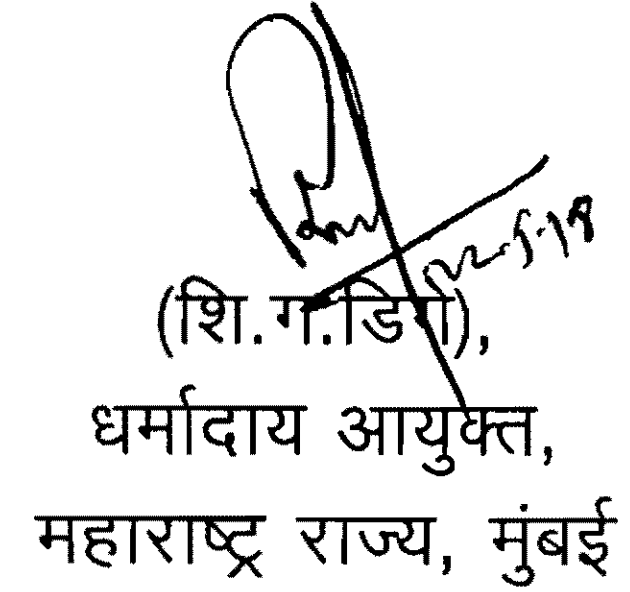 (शि.ग.डिगे),
धर्मादाय आयुक्त,
महाराष्ट्र राज्य, मुंबई